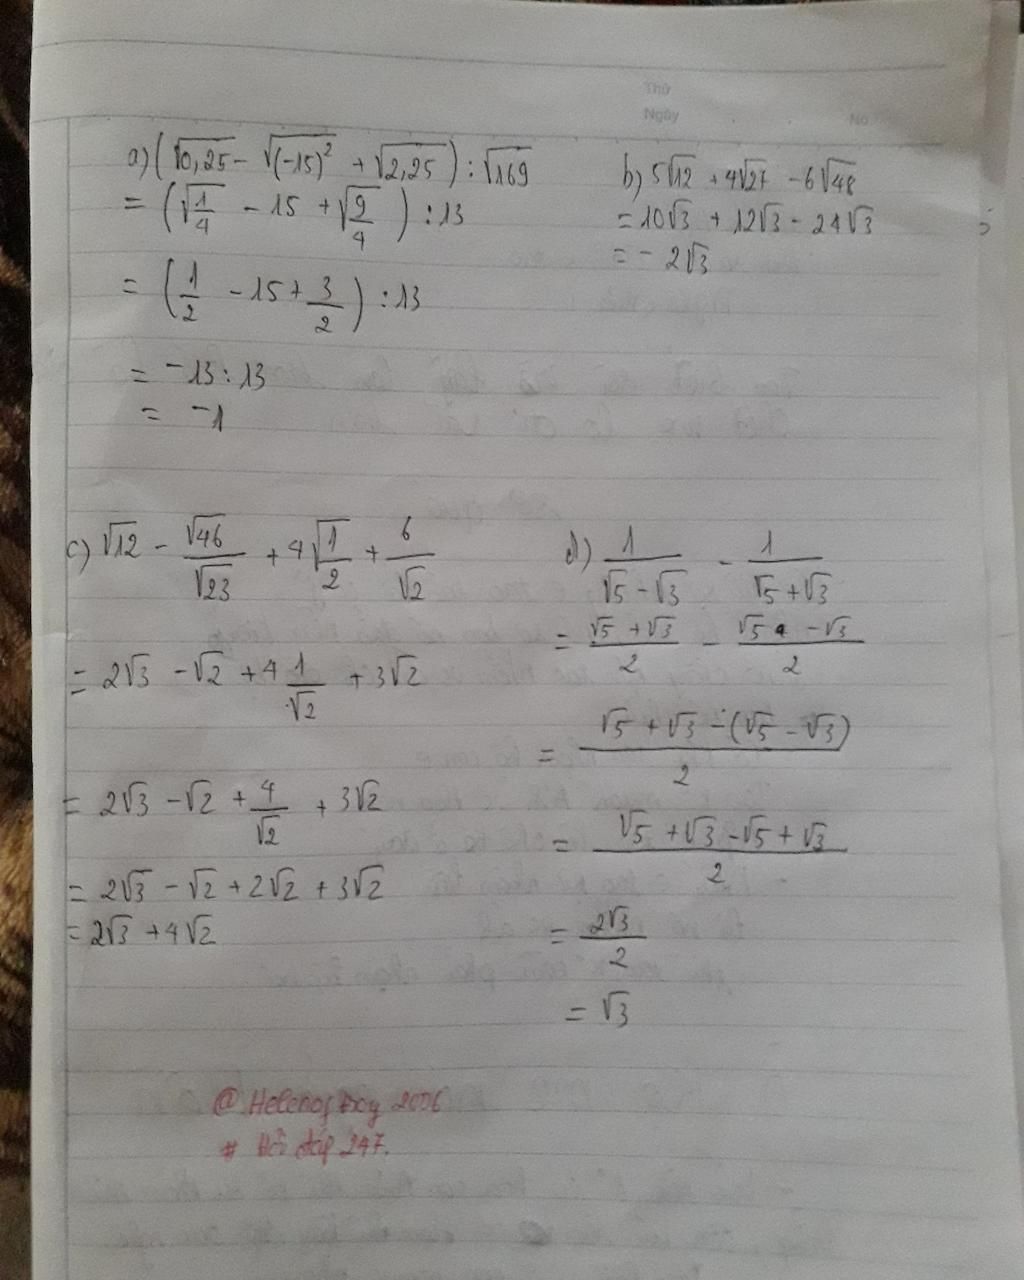 Thứ
Ngày
No
a) (√0,25 - √(-15)² + √2,25) : √169
= (√1/4 - 15 + √9/4) : 13
= (1/2 - 15 + 3/2) : 13
= -13 : 13
= -1
b) 5√12 + 4√27 - 6√48
= 10√3 + 12√3 - 24√3
= -2√3
c) √12 - √46/√23 + 4√1/2 + 6/√2
= 2√3 - √2 + 4 1/√2 + 3√2
= 2√3 - √2 + 4/√2 + 3√2
= 2√3 - √2 + 2√2 + 3√2
= 2√3 + 4√2
d) 1/(√5 - √3) - 1/(√5 + √3)
= (√5 + √3)/2 - (√5 - √3)/2
= (√5 + √3 - (√5 - √3))/2
= (√5 + √3 - √5 + √3)/2
= 2√3/2
= √3
2006
# Hỏi đáp 247.